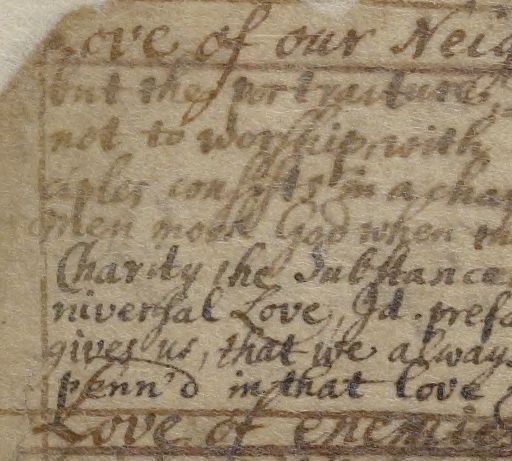 Love of our Neig
but the portraiture
not to worship with
ciples consists in a chang
Men mock God when th
Charity the Substance
niversal Love, Id. prefa
gives us, that we always
penn'd in that love
Love of enemies